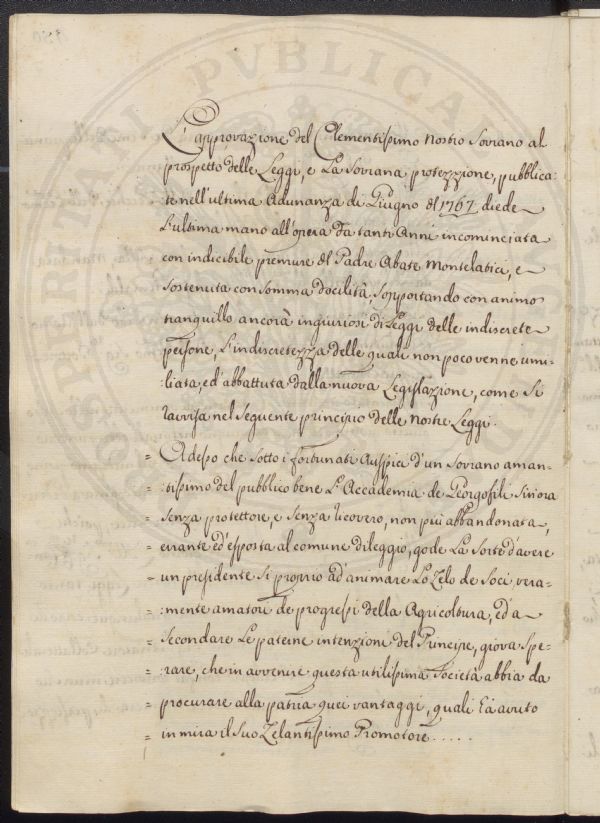 L'approvazione del Clementissimo Nostro Sovrano al
prospetto delle Leggi, e La Sovrana protezzione, pubblica:
te nell'ultima Adunanza di Giugno del 1767. diede
L'ultima mano all'opera da tanti Anni incominciata
con indicibile premure del Padre Abate Montelatici, e
sostenuta con somma docilità, sopportando con animo
tranquillo ancora ingiuriosi dileggi delle indiscrete
persone, L'indiscretezza delle quali non poco venne umi:
:liata, ed' abbattuta dalla nuova Legislazione, come Si
ravvisa nel Seguente principio delle Nostre Leggi.
= Adesso che Sotto i fortunati Auspici d'un Sovrano aman:
= :tissimo del pubblico bene L'Accademia de Georgofili Sin'ora
= Senza protettore, e Senza ricovero, non più abbandonata,
= errante ed' esposta al comune dileggio, gode La Sorte d'avere
= un presidente Si proprio ad' animare Lo Zelo de Soci, vera:
= :mente amatore de progressi della Agricoltura, ed' a
= Secondare Le paterne intenzioni del Principe, giova Spe:
= rare, che in avvenire questa utilissima Società abbia da
= procurare alla patria quei vantaggi, quali hà avuto
= in mira il Suo Zelantissimo Promotore.....
PUBLICAE